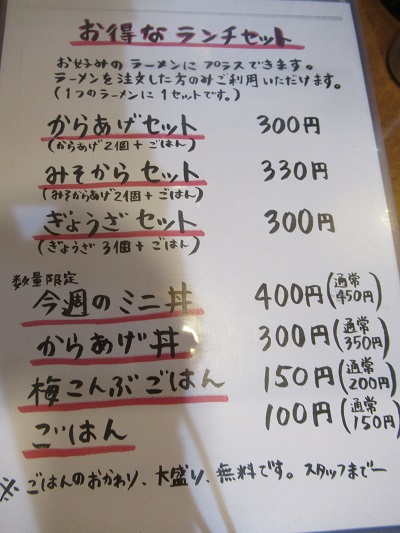 お得なランチセット
お好みのラーメンにプラスできます。
ラーメンを注文した方のみご利用いただけます。
(1つのラーメンに1セットです。)
からあげセット 300円
(からあげ2個+ごはん)
みそからセット 330円
(みそからあげ2個+ごはん)
ぎょうざセット 300円
(ぎょうざ3個+ごはん)
数量限定
今週のミニ丼 400円(通常450円)
からあげ丼 300円(通常350円)
梅こんぶごはん 150円(通常200円)
ごはん 100円(通常150円)
※ごはんのおかわり、大盛り、無料です。スタッフまでー